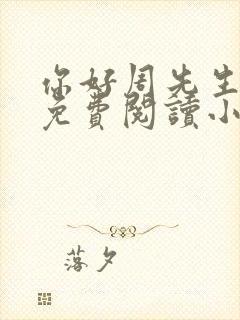 你好周先生
免费閱讀小
落夕